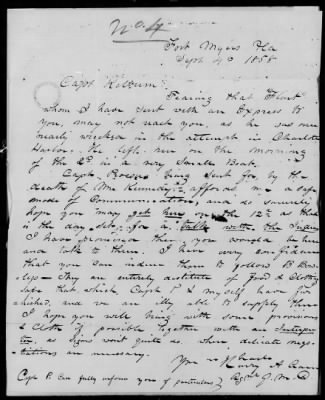 No. 4
Fort Myers Fla
Sept 4th 1858
Capt Kilburn
Fearing that Flint
whom I have sent with an Express to
you, may not reach you, as he was once
nearly wrecked in the attempt in Charlotte
Harbor. He left me on the morning
of the 2d in a very small Boat.
Capt. being sent for, by the
death of Mr Kennedy, affords me a safe
mode of Communication, and so sincerely
hope you may get here on the 12th as that
is the day set for a talk with the
I have promised them you would be here
and talk to them. I have every confidence
that you can induce them to follow B Bow
legs - They are entirely destitute of food & Clothing
save that which Capt P & myself have fur
nished, and we are illy able to supply them
I hope you will bring with some provisions
& Cloth if possible together with an Interpre
ter, as signs won't quite do, when delicate nego-
tiations are necessary.
Capt P. Can fully inform you of particulars